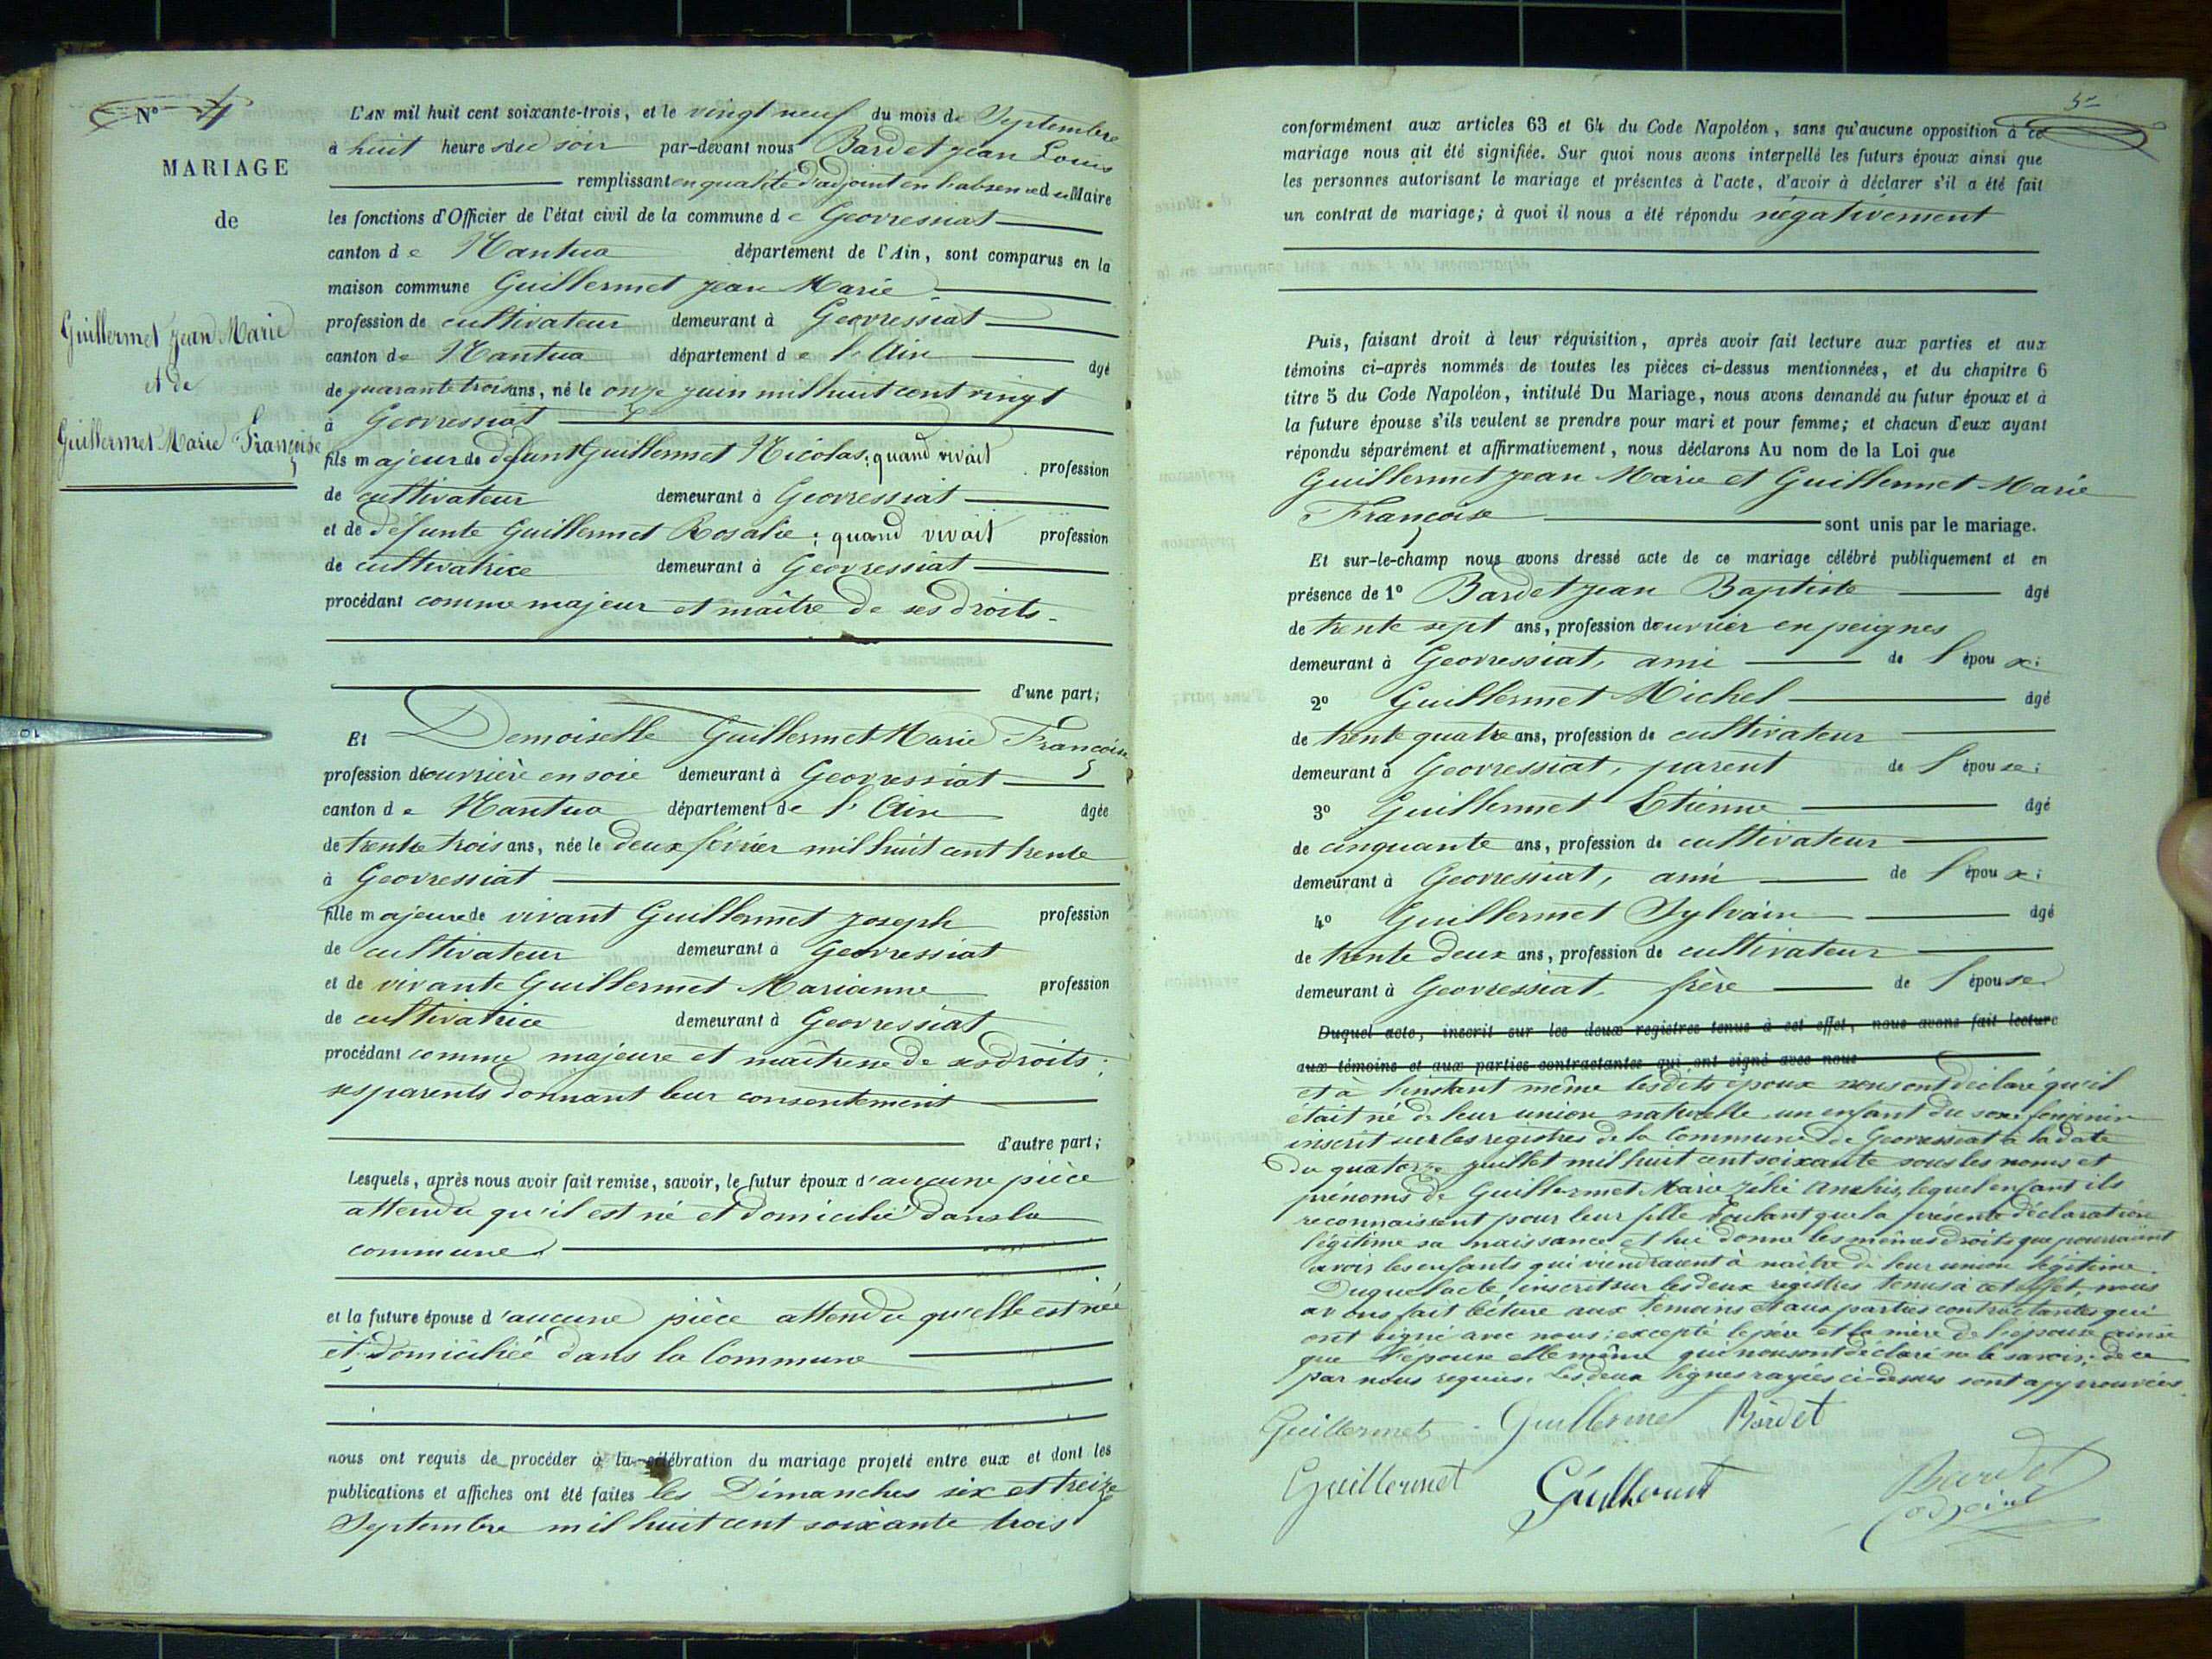 N° 4
MARIAGE
de
Guillermet Jean Marie
et de
Guillermet Marie Françoise
L'AN mil huit cent soixante-trois, et le vingt neuf du mois de Septembre
à huit heures du soir par-devant nous Bardet Jean Louis
remplissant en qualité d'adjoint en l'absence du Maire
les fonctions d'Officier de l'état civil de la commune de Geovressiat
canton de Nantua département de l'Ain, sont comparus en la
maison commune Guillermet Jean Marie
profession de cultivateur demeurant à Geovressiat
canton de Nantua département de l'Ain âgé
de quarante trois ans, né le onze juin mil huit cent vingt
à Geovressiat
fils majeur de défunt Guillermet Nicolas; quand vivait profession
de cultivateur demeurant à Geovressiat
et de défunte Guillermet Rosalie; quand vivait profession
de cultivatrice demeurant à Geovressiat
procédant comme majeur et maître de ses droits.
d'une part;
Et Demoiselle Guillermet Marie Françoise
profession d'ouvrière en soie demeurant à Geovressiat
canton de Nantua département de l'Ain âgée
de trente trois ans, née le deux février mil huit cent trente
à Geovressiat
fille majeure de vivant Guillermet Joseph profession
de cultivateur demeurant à Geovressiat
et de vivante Guillermet Marianne profession
de cultivatrice demeurant à Geovressiat
procédant comme majeure et maîtresse de ses droits;
ses parents donnant leur consentement
d'autre part;
Lesquels, après nous avoir fait remise, savoir, le futur époux d'aucune pièce
attendu qu'il est né et domicilié dans la
commune.
et la future épouse d'aucune pièce attendu qu'elle est née
et domiciliée dans la Commune
nous ont requis de procéder à la célébration du mariage projeté entre eux et dont les
publications et affiches ont été faites les Dimanches six et treize
Septembre mil huit cent soixante trois
5
conformément aux articles 63 et 64 du Code Napoléon, sans qu'aucune opposition à ce
mariage nous ait été signifiée. Sur quoi nous avons interpellé les futurs époux ainsi que
les personnes autorisant le mariage et présentes à l'acte, d'avoir à déclarer s'il a été fait
un contrat de mariage; à quoi il nous a été répondu négativement
Puis, faisant droit à leur réquisition, après avoir fait lecture aux parties et aux
témoins ci-après nommés de toutes les pièces ci-dessus mentionnées, et du chapitre 6
titre 5 du Code Napoléon, intitulé Du Mariage, nous avons demandé au futur époux et à
la future épouse s'ils veulent se prendre pour mari et pour femme; et chacun d'eux ayant
répondu séparément et affirmativement, nous déclarons Au nom de la Loi que
Guillermet Jean Marie et Guillermet Marie
Françoise sont unis par le mariage.
Et sur-le-champ nous avons dressé acte de ce mariage célébré publiquement et en
présence de 1° Bardet Jean Baptiste âgé
de trente sept ans, profession d'ouvrier en peignes
demeurant à Geovressiat, ami de l'époux;
2° Guillermet Michel âgé
de trente quatre ans, profession de cultivateur
demeurant à Geovressiat, parent de l'épouse;
3° Guillermet Etienne âgé
de cinquante ans, profession de cultivateur
demeurant à Geovressiat, ami de l'époux;
4° Guillermet Sylvain âgé
de trente deux ans, profession de cultivateur
demeurant à Geovressiat, frère de l'épouse.
Duquel acte, inscrit sur les deux registres tenus à cet effet, nous avons fait lecture
aux témoins et aux parties contractantes qui ont signé avec nous
et à l'instant même lesdits époux nous ont déclaré qu'il
était né de leur union naturelle un enfant du sexe féminin
inscrit sur les registres de la Commune de Geovressiat à la date
du quatorze juillet mil huit cent soixante sous les noms et
prénoms de Guillermet Marie lequel enfant ils
reconnaissent pour leur fille voulant que la présente déclaration
légitime sa naissance et lui donne les mêmes droits que pourraient
avoir les enfants qui viendraient à naître de leur union légitime.
Duquel acte, inscrit sur les deux registres tenus à cet effet, nous
avons fait lecture aux témoins et aux parties contractantes qui
ont signé avec nous: excepté le père et la mère de l'épouse ainsi
que l'épouse elle même qui nous ont déclaré ne le savoir; de ce
par nous requis. Les deux lignes rayées ci-dessus sont approuvées.
Guillermet Guillermet Bardet
Guillermet Guillermet Bardet
adjoint